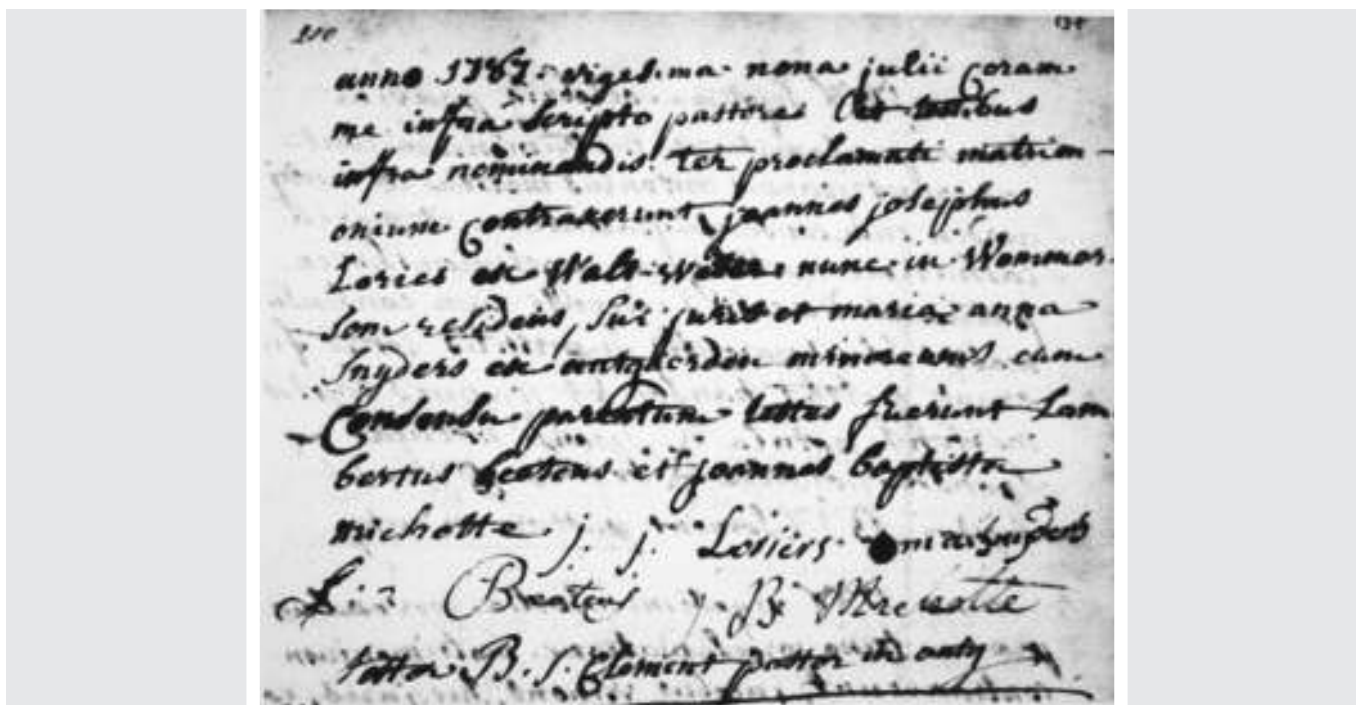 210
134
anno 1787 vigesima nona julii Coram
me infra scripto pastore et testibus
infra nominandis ter proclamati matrim-
onium Contraxerunt joannes josephus
Lories ex Walt-Wilder nunc in Wommer-
som residens sui juris et maria anna
Snyders ex minorennis cum
Consensu parentum testes fuerunt Lam
bertus et joannes baptista
michotte j. j. Loriers Snyders
B
testor B. j. Clement pastor in